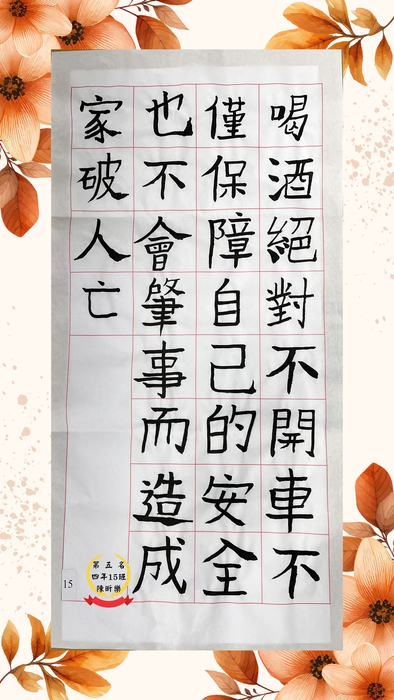 喝酒絕對不開車不
僅保障自己的安全
也不會肇事而造成
家破人亡
第五名
四年15班
陳昕樂
15